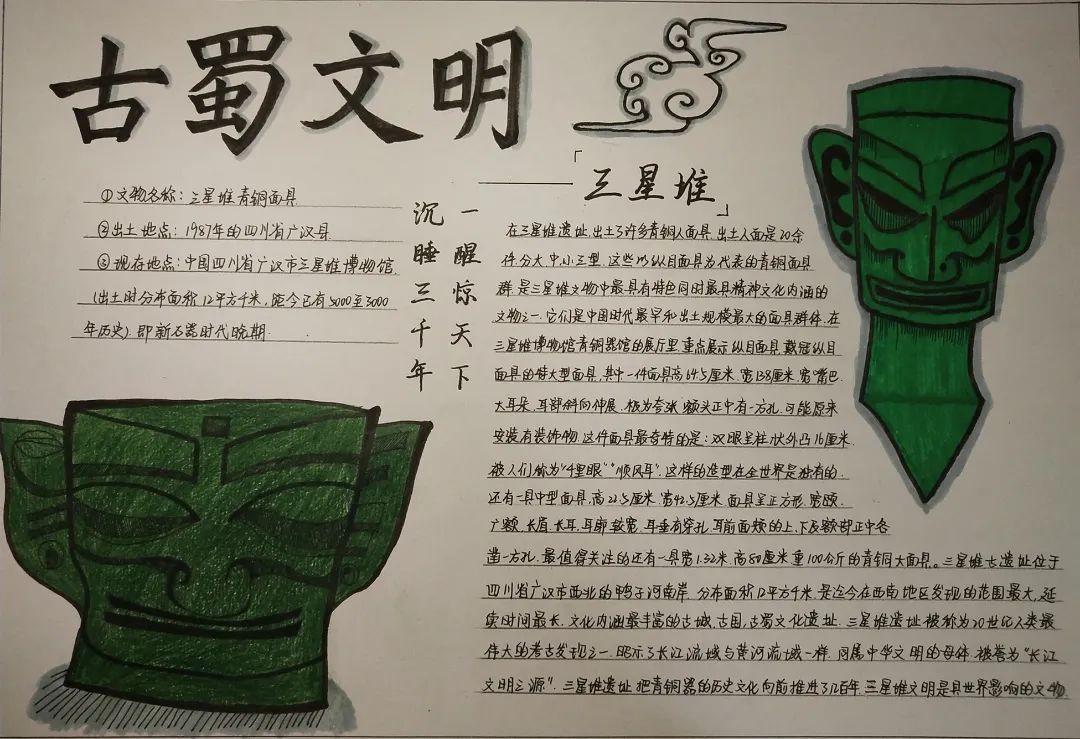 古蜀文明
①文物名称：三星堆青铜面具
②出土地点：1987年的四川省广汉县
③现存地点：中国四川省广汉市三星堆博物馆
(出土时分布面积12平方千米，距今已有5000至3000
年历史)即新石器时代晚期.
一醒惊天下
沉睡三千年
「三星堆」
在三星堆遗址.出土了许多青铜人面具.出土人面是20余
件.分大.中.小三型.这些以纵目面具为代表的青铜面具
群.是三星堆文物中最具有特色同时最具精神文化内涵的
文物之一.它们是中国时代最早和出土规模最大的面具群体.在
三星堆博物馆青铜器馆的展厅里.重点展示纵目面具.戴冠纵目
面具的特大型面具.其中一件面具高64.5厘米.宽138厘米.宽嘴巴.
大耳朵.耳部斜向伸展.极为夸张.额头正中有一方孔.可能原来
安装有装饰物.这件面具最奇特的是：双眼呈柱状外凸16厘米.
被人们称为“千里眼”“顺风耳”.这样的造型在全世界是独有的.
还有一具中型面具.高22.5厘米.宽42.5厘米.面具呈正方形.宽颐.
广额.长眉.长耳.耳郭较宽.耳垂有穿孔.耳前面颊的上.下及额部正中各
凿一方孔.最值得关注的还有一具宽1.32米.高80厘米.重100公斤的青铜大面具。三星堆古遗址位于
四川省广汉市西北的鸭子河南岸.分布面积12平方千米.是迄今在西南地区发现的范围最大.延
续时间最长.文化内涵最丰富的古城.古国.古蜀文化遗址.三星堆遗址被称为20世纪人类最
伟大的考古发现之一.昭示了长江流域与黄河流域一样.同属中华文明的母体.被誉为“长江
文明之源”.三星堆遗址把青铜器的历史文化向前推进了1200年.三星堆文明是具世界影响的文物